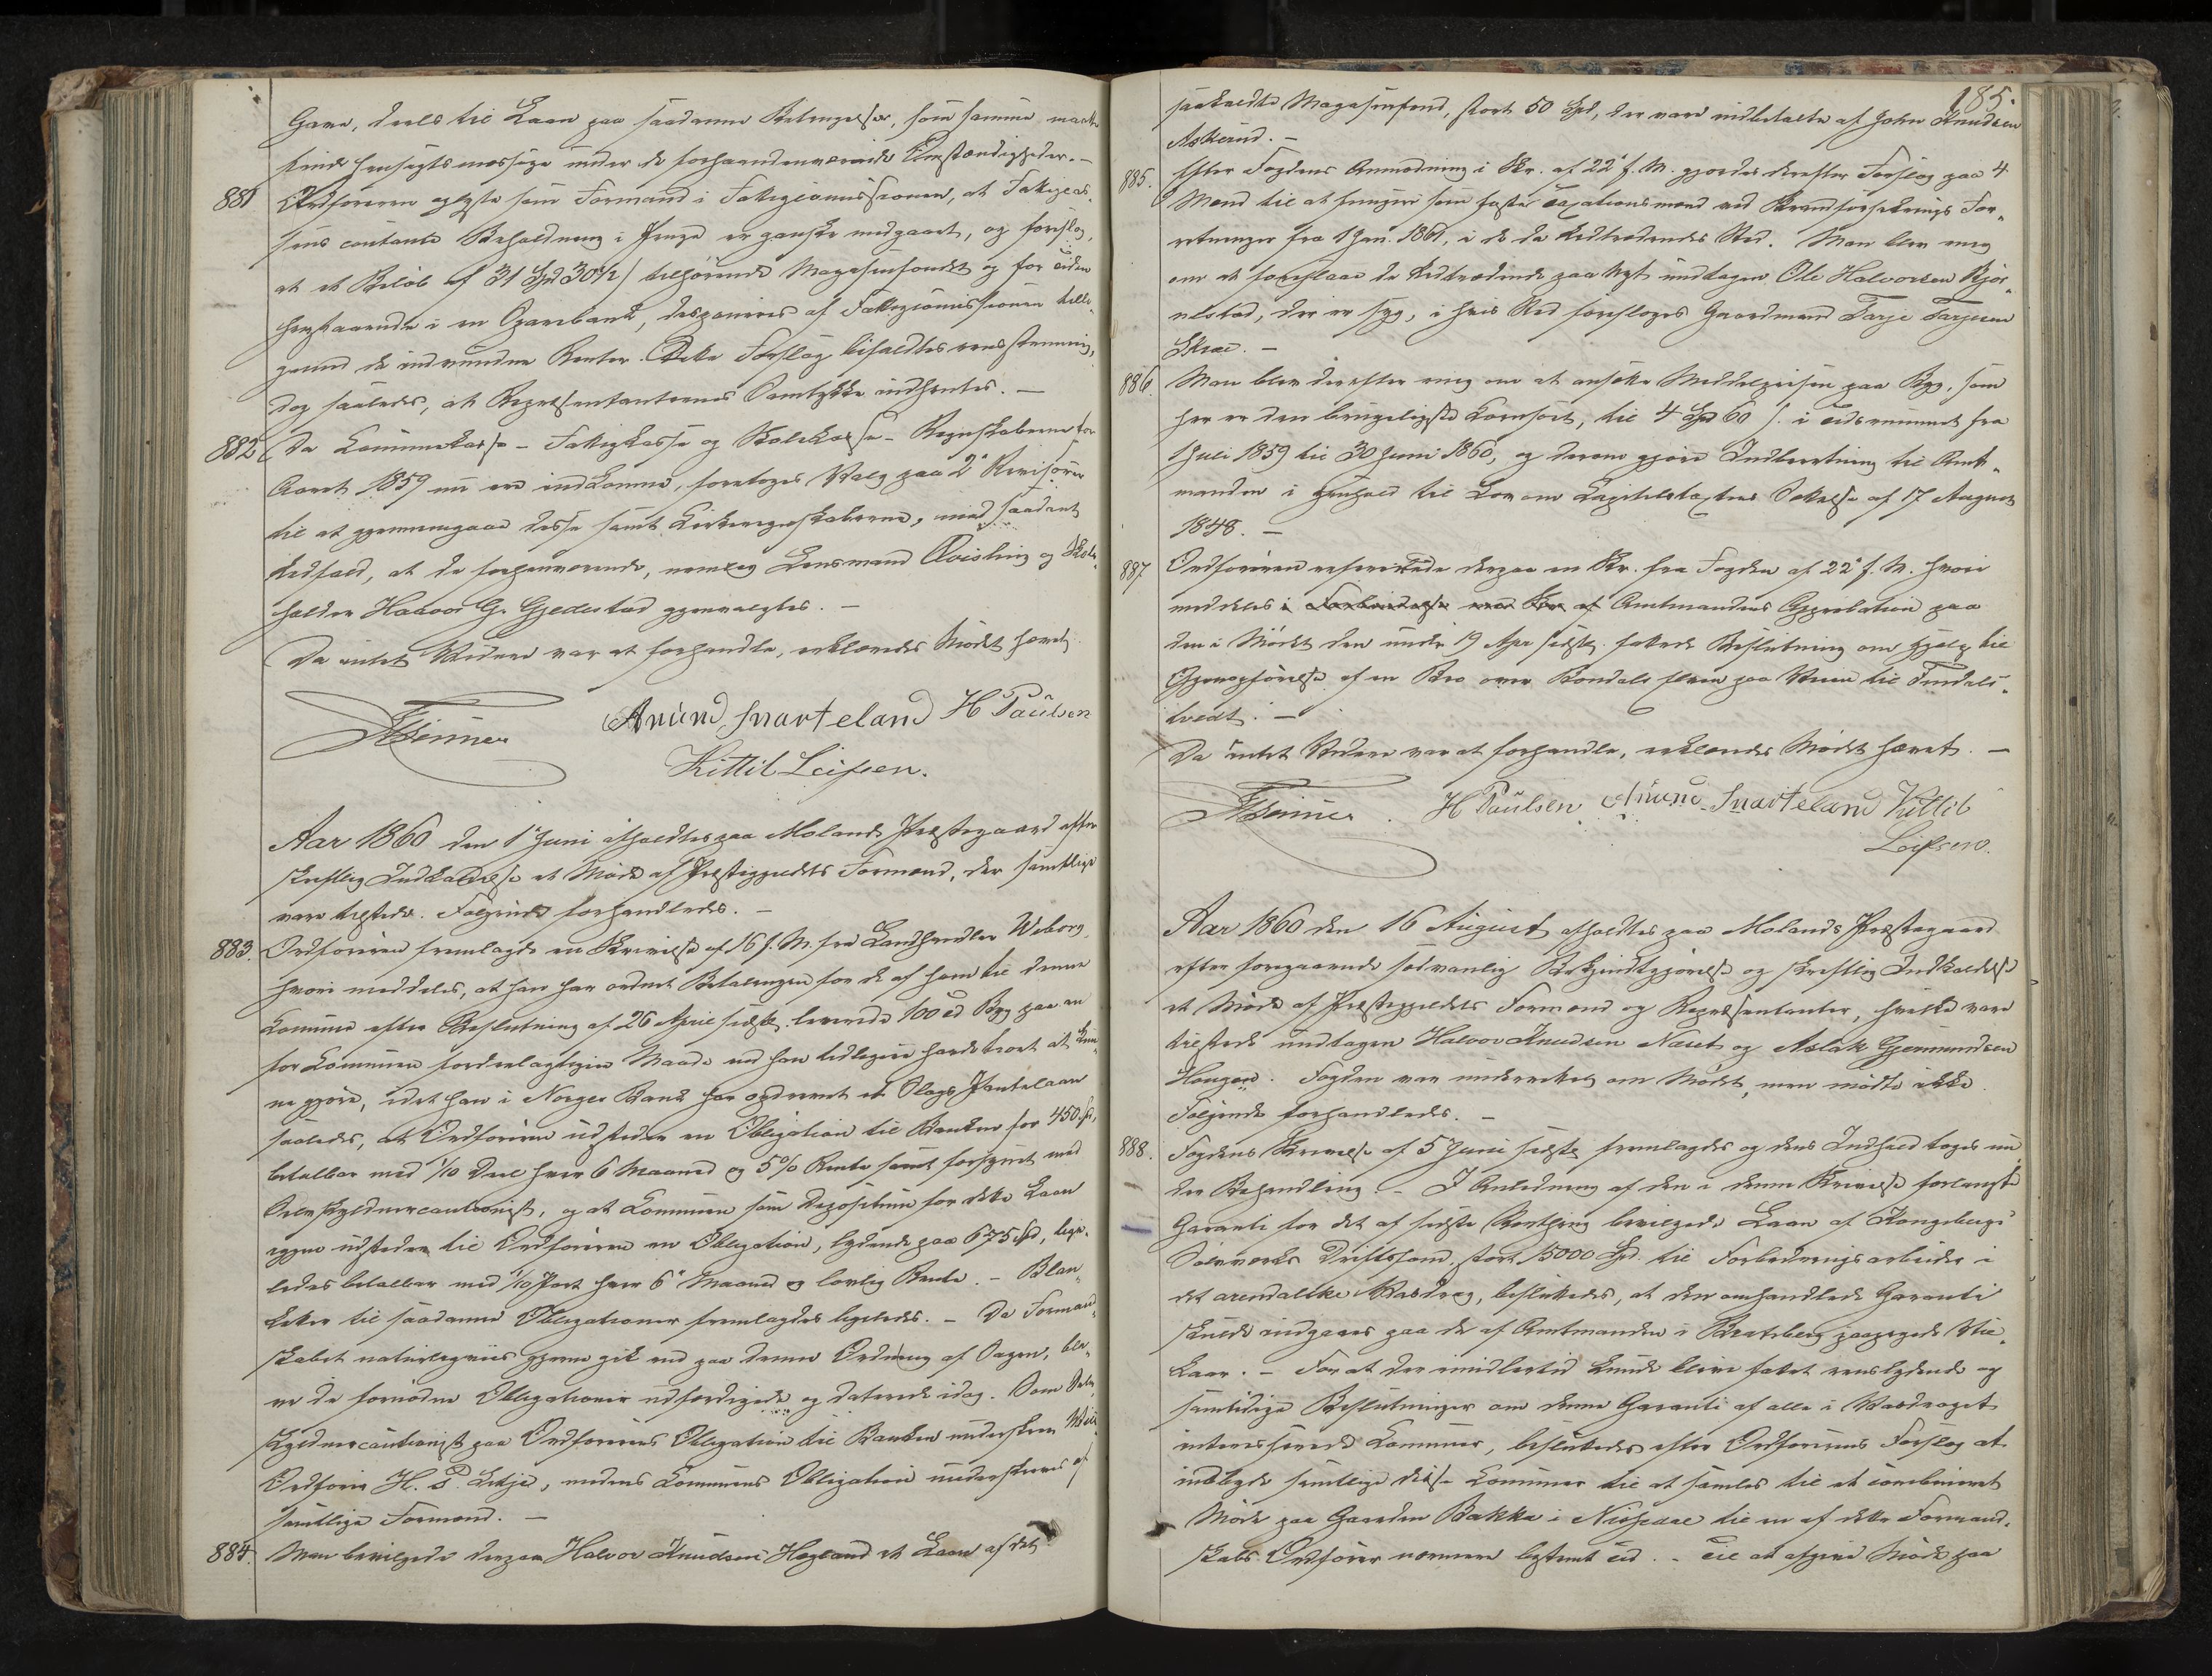 Gave, deels til Laan paa saadanne Betingelser, som samme maatte
finde hensigtsmæssige under de forhaandenværende Omstændigheder. —
881 Ordføreren oplyste som Formand i Fattigcommissionen, at Fattigcas-
sens contante Beholdning i Penge er ganske medgaaet, og foreslog,
at et Beløb af 31 Spd 30½ s tilhørende Magasinfondet og for Tiden
henstaaende i en Sparebank, disponeres af Fattigcommissionen tilli-
gemed de indvundne Renter. Dette Forslag bifaldtes eenstemmig,
dog saaledes, at Repræsentanternes Samtykke indhentes. —
882 Da Communekasse- Fattigkasse og Skolekasse- Regnskaberne for
Aaret 1859 nu ere indkomne, foretoges Valg paa 2de Revisorer
til at gjennemgaae disse samt Kirkeregnskaberne, med saadant
Udfald, at de forhenværende, nemlig Lensmand Qvisling og Skole-
holder Haavor G. Gjedestad gjenvalgtes. —
Da intet Videre var at forhandle, erklæredes Mødet hævet.
Anund Svarteland H Paulsen
Kittil Leifsen.
Aar 1860 den 1 Juni afholdtes paa Molands Præstegaard efter
skriftlig Indkaldelse et Møde af Præstegjeldets Formænd, der samtlige
vare tilstede. Følgende forhandledes. —
883. Ordføreren fremlagde en Skrivelse af 16 f. M. fra Landhandler Wiborg,
hvori meddeles, at han har ordnet Betalingen for de af ham til denne
Comune efter Beslutning af 26 April sidstl. leverede 100 Td Byg paa en
for Communen fordeelagtigere Maade end han tidligere havde troet at kun-
ne gjøre, idet han i Norges Bank har opdrevet et Slags Pantelaan
saaledes, at Ordføreren udsteder en Obligation til Banken for 450 Sp,
betalbar med 1/10 Deel hver 6 Maaned og 5% Rente samt forsynet med
Selvskyldnercautionist, og at Communen som Depositum for dette Laan
igjen udsteder til Ordføreren en Obligation, lydende paa 675 Spd, lige-
ledes betalbar med 1/10 Part hver 6te Maaned og lovlig Rente. — Blan-
ketter til saadanne Obligationer fremlagdes ligeledes. — Da Formand-
skabet naturligviis gjerne gik ind paa denne Ordning af Sagen, ble-
ve de fornødne Obligationer udfærdigede og daterede idag. Som Selv-
skyldnercautionist paa Ordførerens Obligation til Banken underskrev Vice-
Ordfører H. P. , medens Communens Obligation underskreves af
samtlige Formænd. —
884. Man bevilgede derpaa Halvor Knudsen Høgland et Laan af det
185.
saakaldte Magasinfond, stort 50 Spd, der vare indbetalte af John Knudsen
Askland. —
885. Efter Fogdens Anmodning i Skr. af 22de f. M. gjordes derefter Forslag paa 4
Mænd til at fungere som faste Taxationsmænd ved Brandforsikrings For-
retninger fra 1 Jan. 1861, i de da Udtrædendes Sted. Man blev enig
om at foreslaae de Udtrædende paa Nyt undtagen Ole Halvorsen Bjør-
nestad, der er syg, i hvis Sted foresloges Gaardmand Tarje Tarjesen
886. Man blev derefter enig om at ansætte Middelprisen paa Byg, som
her er den brugeligste Kornsort, til 4 Spd 60 s. i Tidsrummet fra
1 Juli 1859 til 30 Juni 1860, og derom gjøre Indberetning til Amt-
manden i Henhold til Lov om Capitelstaxtens Sættelse af 17 August
1848. —
887 Ordføreren refererede derpaa en Skr. fra Fogden af 22de f. M. hvori
meddeles Amtmandens Approbation paa
den i Mødet den under 19 Apr sidstl. fattede Beslutning om Hjelp til
Gjenopførelse af en Bro over Bondals Elven paa Veien til Fundals-
tvedt. —
Da intet Videre var at forhandle, erklæredes Mødet hævet. —
H Paulsen Anund Svarteland Kittil
Leifsen.
Aar 1860 den 16 August afholdtes paa Molands Præstegaard
efter foregaaende sædvanlig Bekjendtgjørelse og skriftlig Indkaldelse
et Møde af Præstegjeldets Formænd og Repræsentanter, hvilke vare
tilstede undtagen Halvor Knudsen Næset og Aslak Gjermundsen
Haugen. Fogden var underrettet om Mødet, men mødte ikke.
Følgende forhandledes. —
888. Fogdens Skrivelse af 5 Juni sidstl. fremlagdes og dens Indhold toges un-
der Behandling. — I Anledning af den i denne Skrivelse forlangte
Garanti for det af sidste Storthing bevilgede Laan af Kongsbergs
Sølvværks Driftsfond, stort 15000 Spd. til Forbedringsarbeider i
det arendalske Vasdrag, besluttedes, at den omhandlede Garanti
skulde indgaaes paa de af Amtmanden i Bratsberg paapegede Vil-
kaar. — For at der imidlertid kunde blive fattet eenslydende og
samtidige Beslutninger om denne Garanti af alle i Vasdraget
interesserede Communer, besluttedes efter Ordførerens Forslag at
indbyde samtlige disse Communer til at samles til et combineret
Møde paa Gaarden Bakka i Nissedal til en af dette Formand-
skabs Ordfører nærmere bestemt Tid. — Til at afgive Møde paa